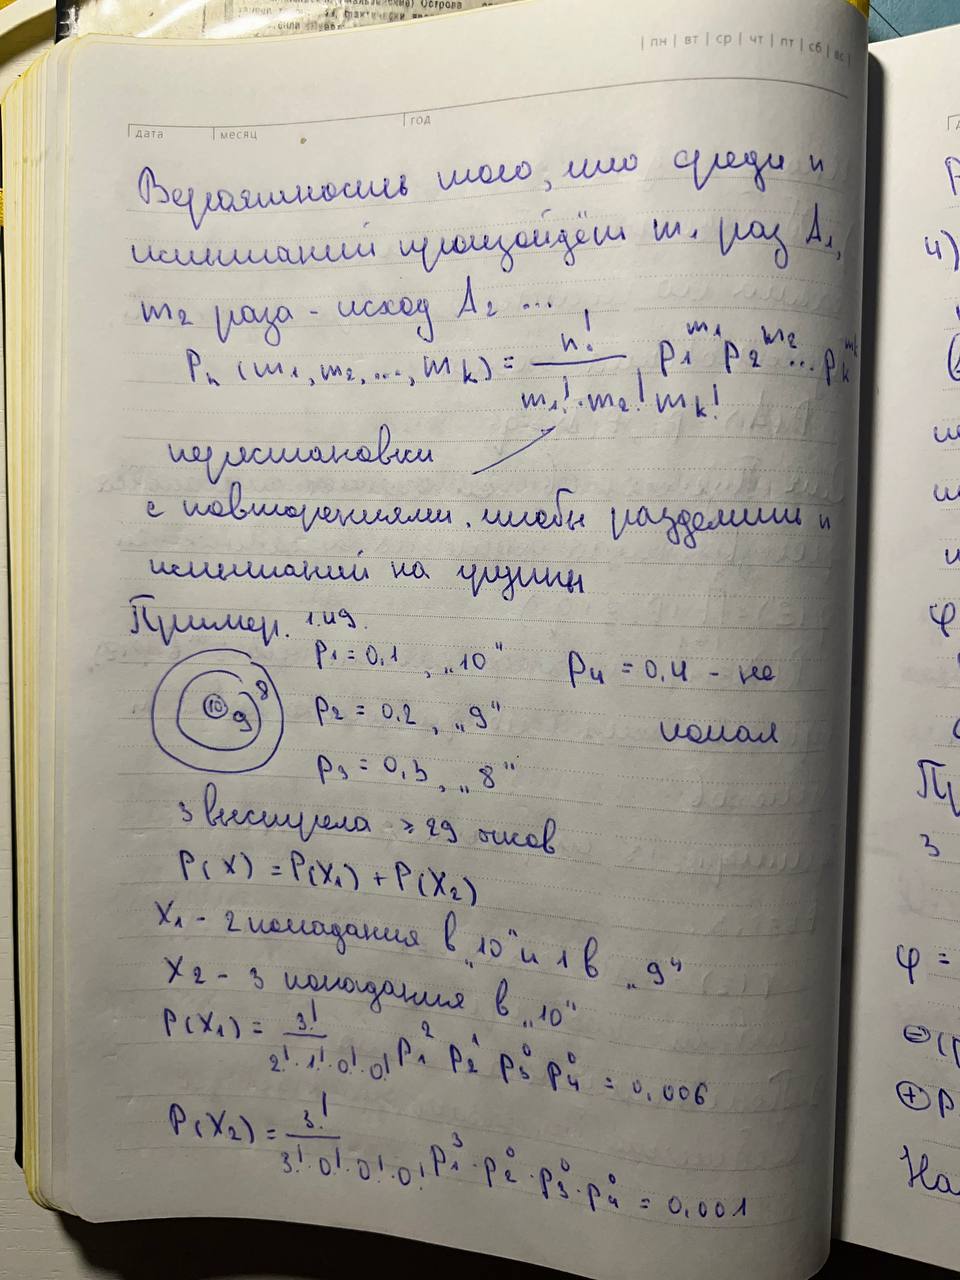 Острова
фактически
| пн | вт | ср | чт | пт | сб | вс |
дата месяц год
Вероятность того, что среди n
испытаний произойдёт m₁ раз A₁,
m₂ раза - исход A₂ ...
Pₙ (m₁, m₂, ..., mₖ) = n! / (m₁! · m₂! mₖ!) p₁^m₁ p₂^m₂ ... pₖ^mₖ
перестановки
с повторениями, чтобы разделить n
испытаний на группы
Пример. 1.49.
p₁ = 0,1, „10“ p₄ = 0,4 - не
10 9 8
p₂ = 0,2, „9“ попал
p₃ = 0,3, „8“
3 выстрела ≥ 29 очков
P(X) = P(X₁) + P(X₂)
X₁ - 2 попадания в „10“ и 1 в „9“
X₂ - 3 попадания в „10“
P(X₁) = 3! / (2! · 1! · 0! · 0!) p₁² p₂¹ p₃⁰ p₄⁰ = 0,006
P(X₂) = 3! / (3! · 0! · 0! · 0!) p₁³ · p₂⁰ · p₃⁰ · p₄⁰ = 0,001
4)
φ
3
φ =